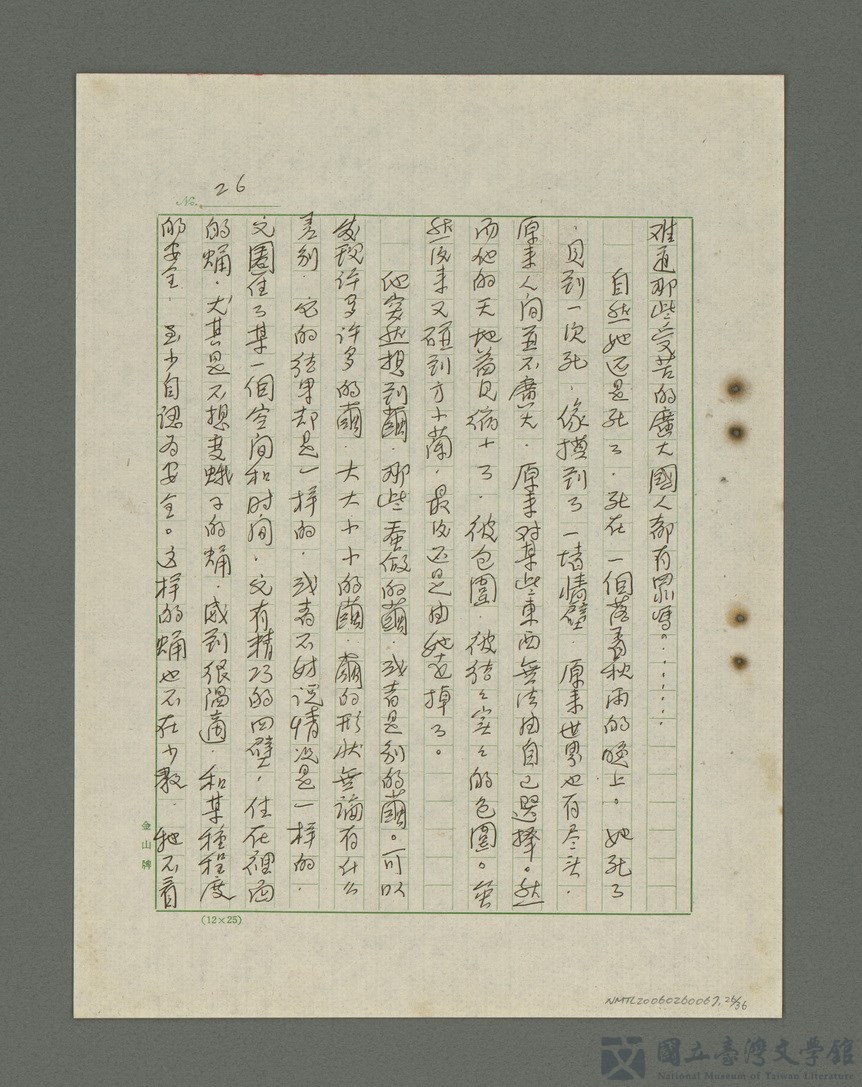 No. 26
难道那些受苦的廣大國人都有罪嗎。……
自然她还是死了．死在一個落着秋雨的晚上。她死了
．見到一次死．像摸到了一堵墙壁．原来世界也有尽头．
原来人间並不廣大．原来对某些東西無法由自己選擇。然
而他的天地當真縮小了．彼包圍．彼結之实之的包圍。虽
然後来又碰到方小蘭，最後还是由她走掉了。
他突然想到繭．那些蚕做的繭．或者是别的繭。可以
发现许多许多的繭．大大小小的繭．繭的形状無論有什么
差别．它的结果却是一样的．或者不妨说情况是一样的．
它圍住了某一個空间和时间．它有精巧的四壁，住在裡面
的蛹．尤其是不想变蛾子的蛹．感到很温適．和某種程度
的安全．至少自認为安全。这样的蛹也不在少数．牠不看
金山牌
(12×25)
NMTL20060260067.26/36
國立臺灣文學館
National Museum of Taiwan Literature